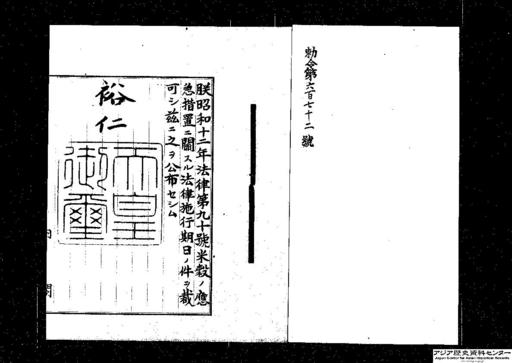 勅令第六百七十二號
朕昭和十二年法律第九十號米穀ノ應
急措置ニ關スル法律施行期日ノ件ヲ裁
可シ茲ニ之ヲ公布セシム
裕仁
天皇
御璽
内閣
アジア歴史資料センター
Japan Center for Asian Historical Records